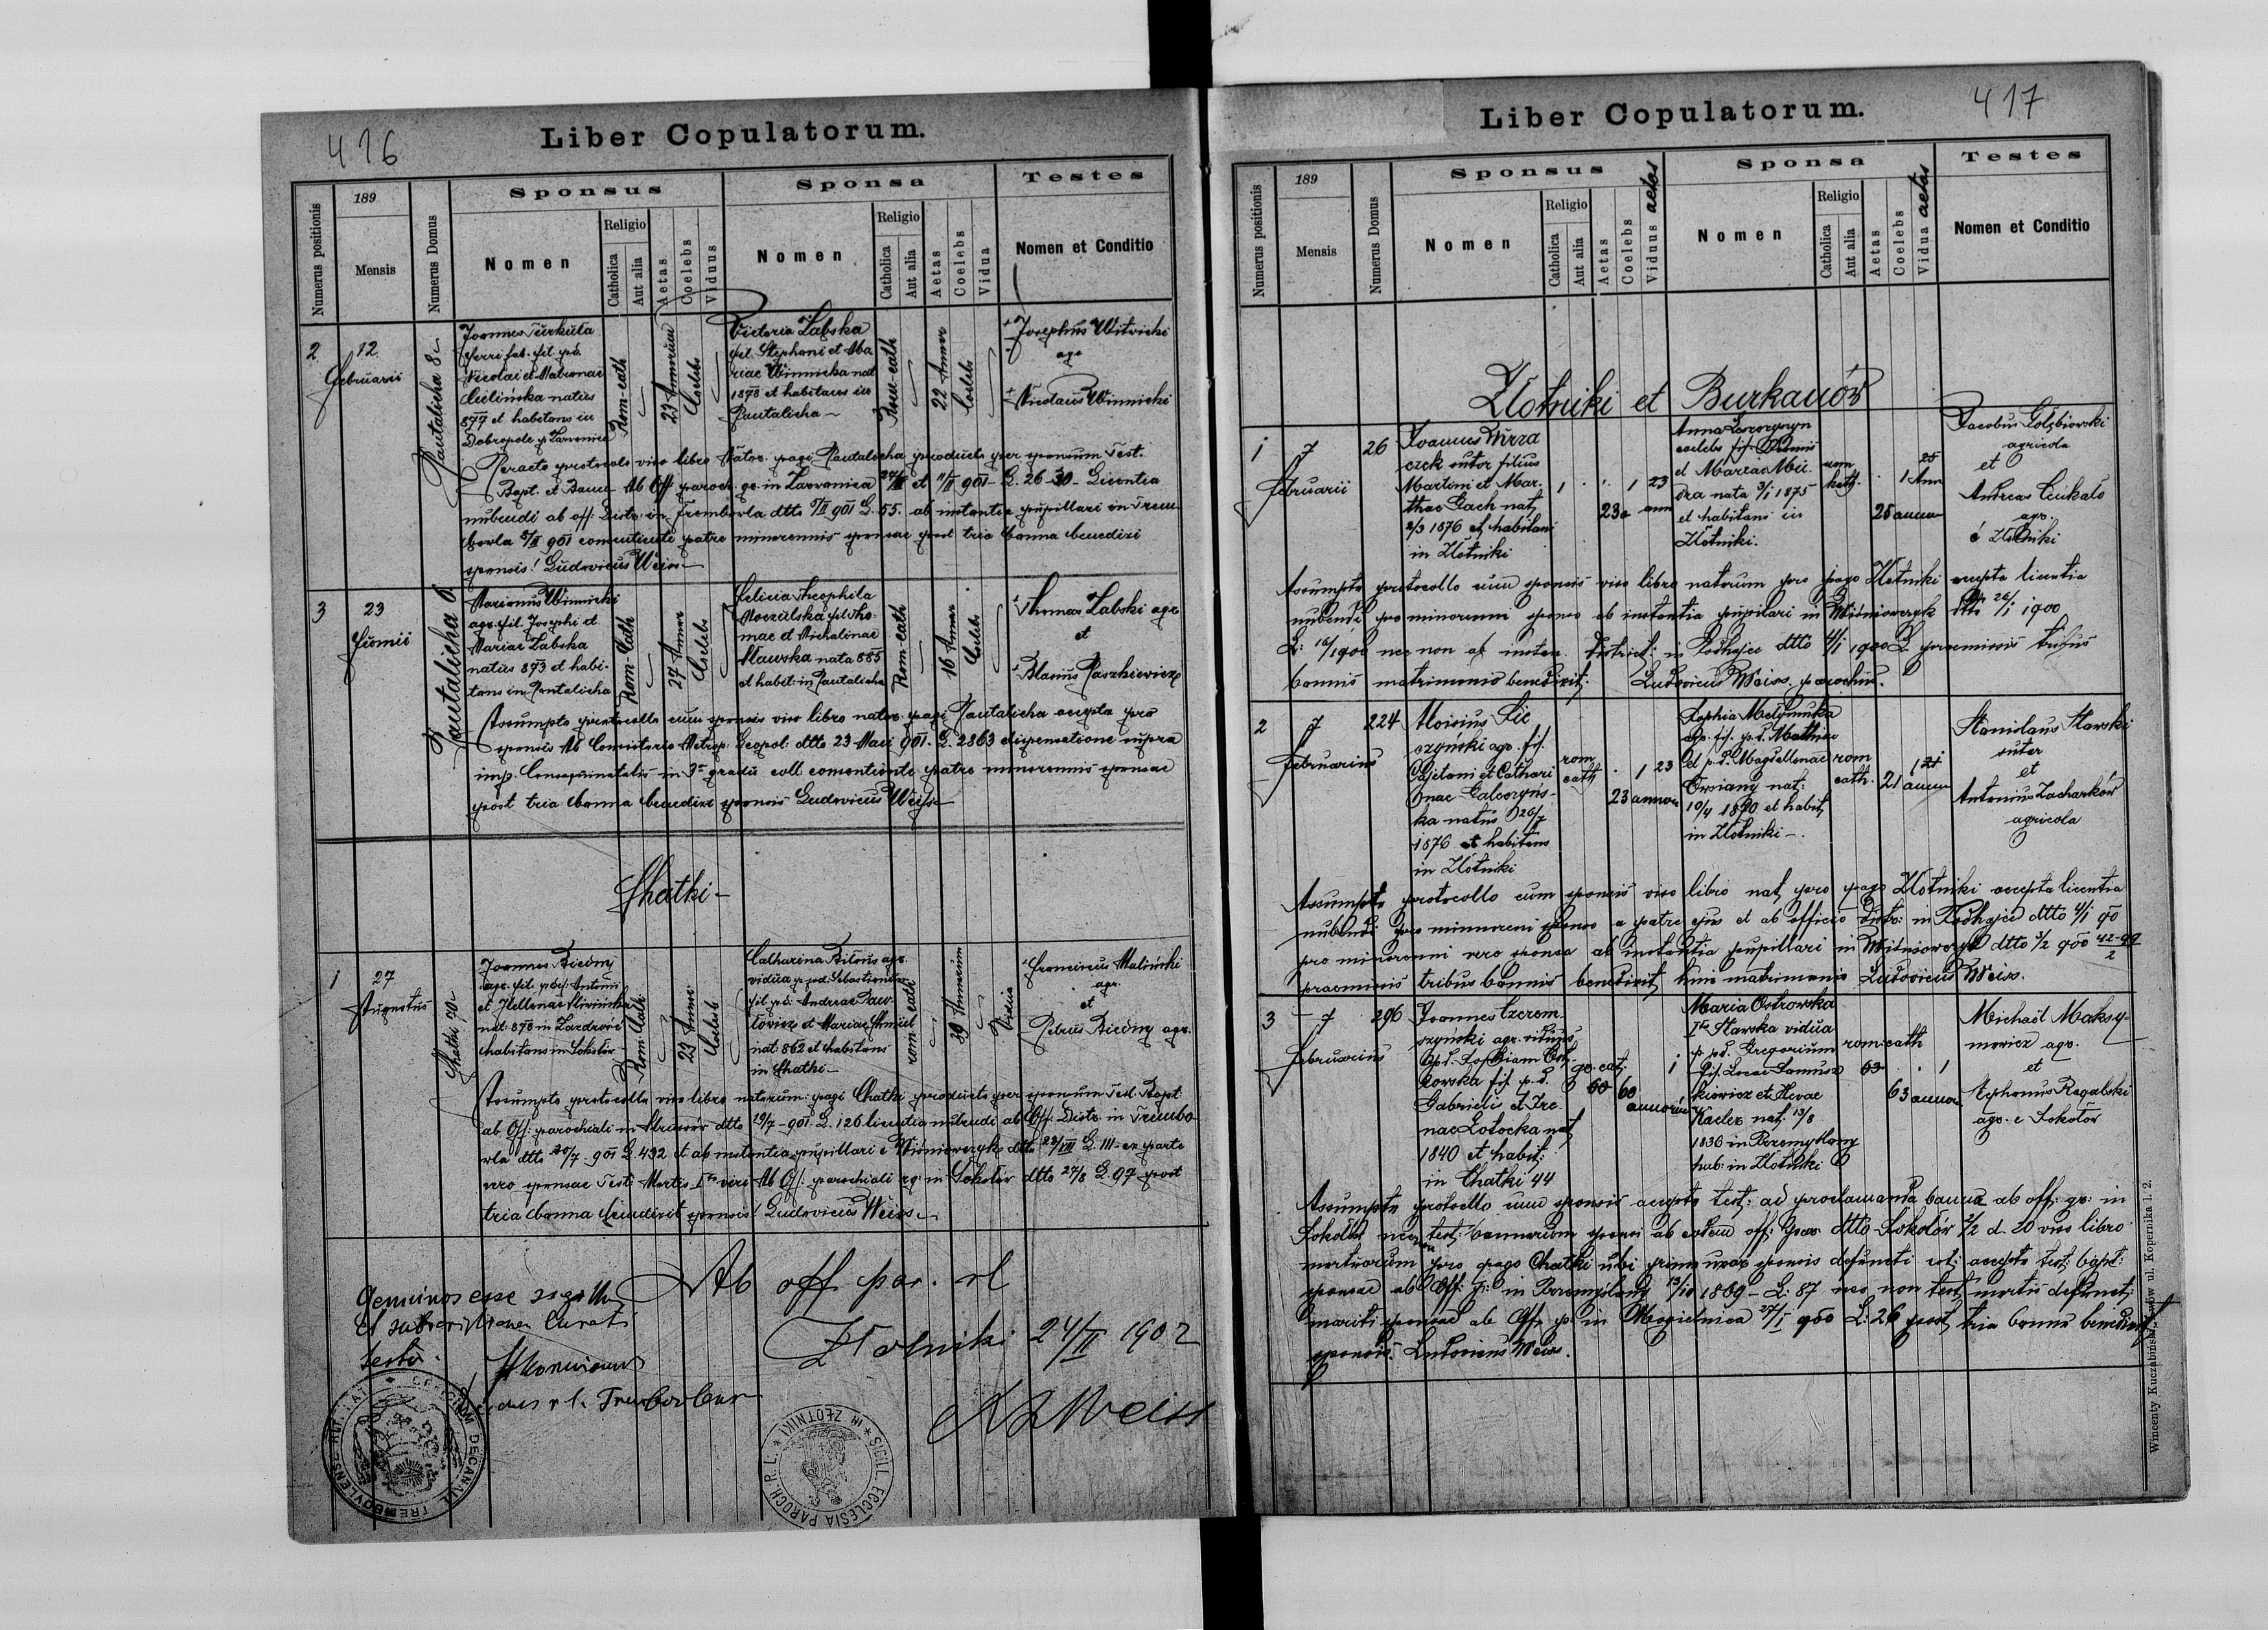 416
Liber Copulatorum.
Numerus positionis
189
Mensis
Numerus Domus
Sponsus
Nomen
Religio
Catholica
Aut alia
Aetas
Coelebs
Viduus
Sponsa
Nomen
Religio
Catholica
Aut alia
Aetas
Coelebs
Vidua
Testes
Nomen et Conditio
2
12
Februarii
Pantalicha 8
Joannes Turkuła
ferri fab. fil. p.d.
Nicolai et Mabronae
Cielińska natus
877 et habitans in
Dobropole p
Rom-cath
23 Annorum
Coelebs
Victoria Łabska
fil. Stephani et Ma
riae Winnicka nat
1878 et habitans in
Pantalicha
Rom-cath
22 Annor
Coelebs
Josephus Witwicki
agr
Nicolaus Winnicki
Peracto protocolo viso libro Nator. pagi Pantalicha producto per sponsum Test.
Bapt. et Bann Ab Off paroch. gr. in 901 L. 26-30 Licentia
nubendi ab off. Distr. in Trembowla dtto 5/II 901 L. 55. ab instantia pupillari in Trem
bowla 5/II 901 consentiente patre minorennis sponsae post tria banna benedixi
sponsis! Ludovicus Weiss
3
23
Junii
Pantalicha 6
Marianus Winnicki
agr. fil. Josephi et
Mariae Łabska
natus 873 et habi-
tans in Pantalicha
Rom-Cath
27 Annor
Coelebs
Felicia Theophila
Moczulska fil Tho-
mae et Michalinae
Sławska nata 885
et habit: in Pantalicha
Rom-cath
16 Annor
Coelebs
Thomas Łabski agr
et
Blasius Paszkiewicz
Assumpto protocollo cum sponsis viso libro nator. pagi Pantalicha accepta pro
sponsis Ab Consistorio Metrop. Leopol: dtto 23 Maii 901. L. 2863 dispensatione supra
imp. Consanguinitatis in 3º gradu coll. consentiente patre minorennis sponsae
post tria banna benedixi sponsis Ludovicus Weiss
Chatki
1
27
Augustus
Chatki 70
Joannes Biedny
agr. fil. p def. Antonii
et Hellenae Śliwińska
nat: 878 in Zazdrość
habitans in Sokołów
Rom. Cath
23 Annor
Coelebs
Catharina Biłous agr.
vidua p. pod. Sebastianum
fil p.d. Andreae Paw-
łowicz et Mariae
nat 862 et habitans
in Chatki
rom-cath
39 Annorum
Vidua
Franciscus Maliński
agr.
et
Petrus Biedny agr.
Assumpto protocollo viso libro natorum: pagi Chatki producto per sponsum Test. Bapt
ab Off. parochiali in Strusów dtto 19/7-901. L. 126 licentia nubendi ab Off. Distr. in Trembo
wla dtto 20/7 901 L. 492 et ab instantia pupillari e Wiśniowczyk dtto 23/VII L. III ex parte
vero sponsae Test: Mortis Iº viri Ab Off. parochiali rg. in Sokołów dtto 27/8 L. 97 post
tria banna benedixit sponsis! Ludovicus Weiss
Genuinos esse sigillum
et subscriptionem Curati
testor.
decanus r. l. Trembovlens
Ab off par. rl
Złotniki 24/II 1902
Weiss
OFFICIUM DECANALE TREMBOVLENSE RIT. LAT
SIGILL. ECCLESIA PAROCH. R. L. IN ZŁOTNIKI
417
Liber Copulatorum.
Numerus positionis
189
Mensis
Numerus Domus
Sponsus
Nomen
Religio
Catholica
Aut alia
Aetas
Coelebs
Viduus aetas
Sponsa
Nomen
Religio
Catholica
Aut alia
Aetas
Coelebs
Vidua aetas
Testes
Nomen et Conditio
Złotniki et Burkanów
1
7
Februarii
26
Joannes
czek sutor filius
Martini et Mar.
thae Gach nat,
2/3 1876 et habitans
in Złotniki
1
1 23
23 ann
Anna
coelebs fil.
et Mariae
dra nata 3/1 1875
et habitans in
Złotniki.
rom
kath.
1 Ann
25 annor
Jacobus Gołębiowski
agricola
et
Andreas Ciukało
agr.
é Złotniki
Assumpto protocollo cum sponsis viso libro natorum pro pago Złotniki accepta licentia
nubendi pro minorenni sponso ab instantia pupilari in Wiśniowczyk dtto 26/1 1900
L: 16/1900 nec non ab instan. District: in Podhajce dtto 4/1 1900 L praemissis tribus
bannis matrimonio benedixit. Ludovicus Weiss, parochus.
2
7
Februarius
224
Aloisius Lic
szyński agr. fil.
Cajetani et Cathari
nae Galczyńs-
ka natus 26/7
1876 et habitans
in Złotniki
rom
cath
1 23
23 annor
Sophia Medynuka
agr. fil. p.d. Mathiae
et p.d. Magdellenae
nat:
10/4 1890 et habit,
in Złotniki
rom
cath.
1 21
21 annor
Stanislaus Sławski
sutor
et
Antonius Zacharków
agricola
Assumpto protocollo cum sponsis viso libro nat, pro pago Złotniki accepta licentia
nubendi pro minoreni sponso a patre ejus et ab officio Distr: in Podhajce dtto 4/1 900
pro minorenni vero sponsa ab instantia pupillari in Wiśniowczyk dtto 3/2 900 42-99/2
praemissis tribus bannis benedixit huic matrimonio Ludovicus Weiss.
3
7
Februarius
296
Joannes Czerem
szyński agr. viduus
p.d. Sophiam
Kowska fil. p.d.
Gabrielis et Ire.
nae Łotocka nat,
1840 et habit:
in Chatki 44
gr. cat
1
60
60
annorum
Maria Ostrowska
Iº Sławska vidua
p. p.d. Gregorium
fil. Lucae Tomusz
kiewicz et Hevae
Kacler nat. 13/8
1836 in Przemyślany
hab: in Złotniki
rom-cath
63
1
63 annor
Michaël Maksy-
mowicz agr.
et
Alphonsus Rogalski
agr. e Sokołów
Assumpto protocollo cum sponsis accepto test: ad proclamanda banna ab off: gr: in
Sokołów nec non test: bannorum sponsi ab eodem off: Graec dtto Sokołów 7/2 d. 20 viso libro
mortuorum pro pago Chatki ubi prima uxor sponsi defuncti est: accepto test: bapt:
sponsae ab Off: p: in Przemyślany 13/10 1869 - L: 87 nec non test, mortis defunct:
mariti sponsae ab Off: p: in Mogielnica 27/1 900 L: 26 post tria banna benedixit
sponsis. Ludovicus Weiss.
Wincenty Kuczabiński, Lwów ul. Kopernika l. 2.